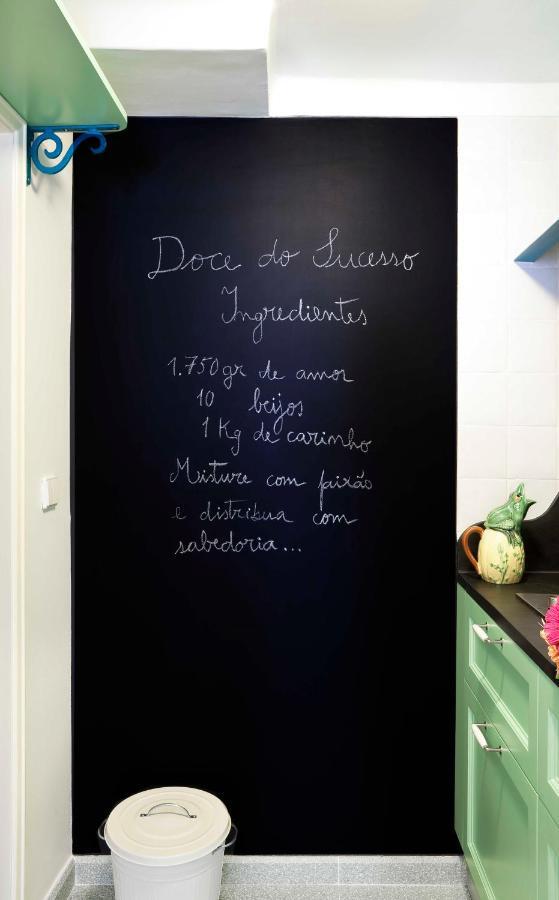 Doce do Sucesso
Ingredientes
1.750gr de amor
10 beijos
1 Kg de carinho
Misture com paixão
e distribua com
sabedoria...